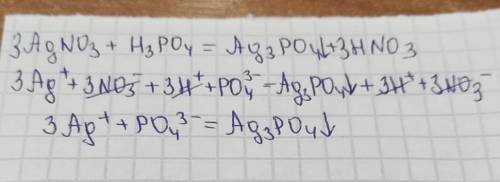 3AgNO₃ + H₃PO₄ = Ag₃PO₄↓+3HNO₃
3Ag⁺+3NO₃⁻+3H⁺+PO₄³⁻=Ag₃PO₄↓+3H⁺+3NO₃⁻
3Ag⁺+PO₄³⁻=Ag₃PO₄↓